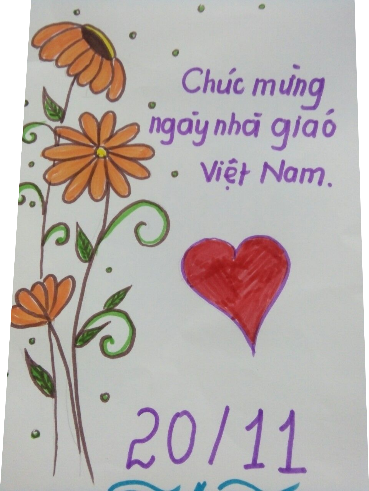 Chúc mừng
ngày nhà giáo
Việt Nam.
20/11